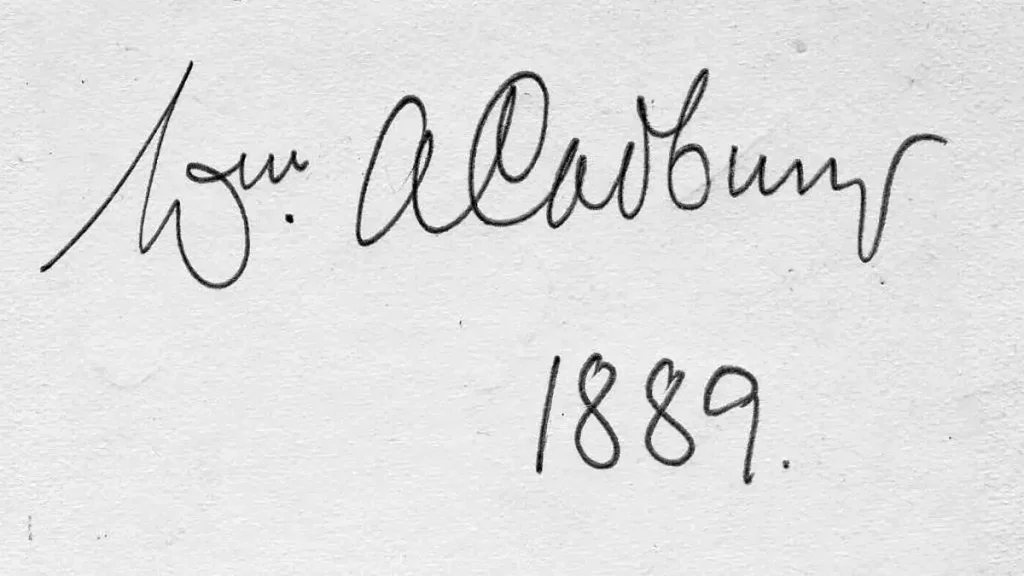 Wm. A Cadbury
1889.